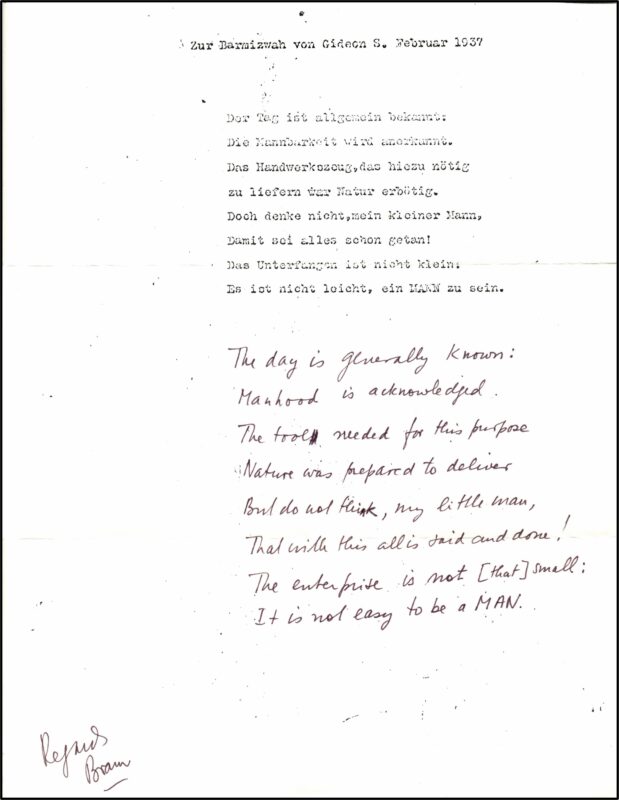 Zur Barmizwah von Gideon S. Februar 1937
Der Tag ist allgemein bekannt:
Die Mannbarkeit wird anerkannt.
Das Handwerkszeug,das hiezu nötig
zu liefern war Natur erbötig.
Doch denke nicht,mein kleiner Mann,
Damit sei alles schon getan!
Das Unterfangen ist nicht klein:
Es ist nicht leicht, ein MANN zu sein.
The day is generally known:
Manhood is acknowledged.
The tool needed for this purpose
Nature was prepared to deliver
But do not think, my little man,
That with this all is said and done!
The enterprise is not [that] small:
It is not easy to be a MAN.
Regards
Bram